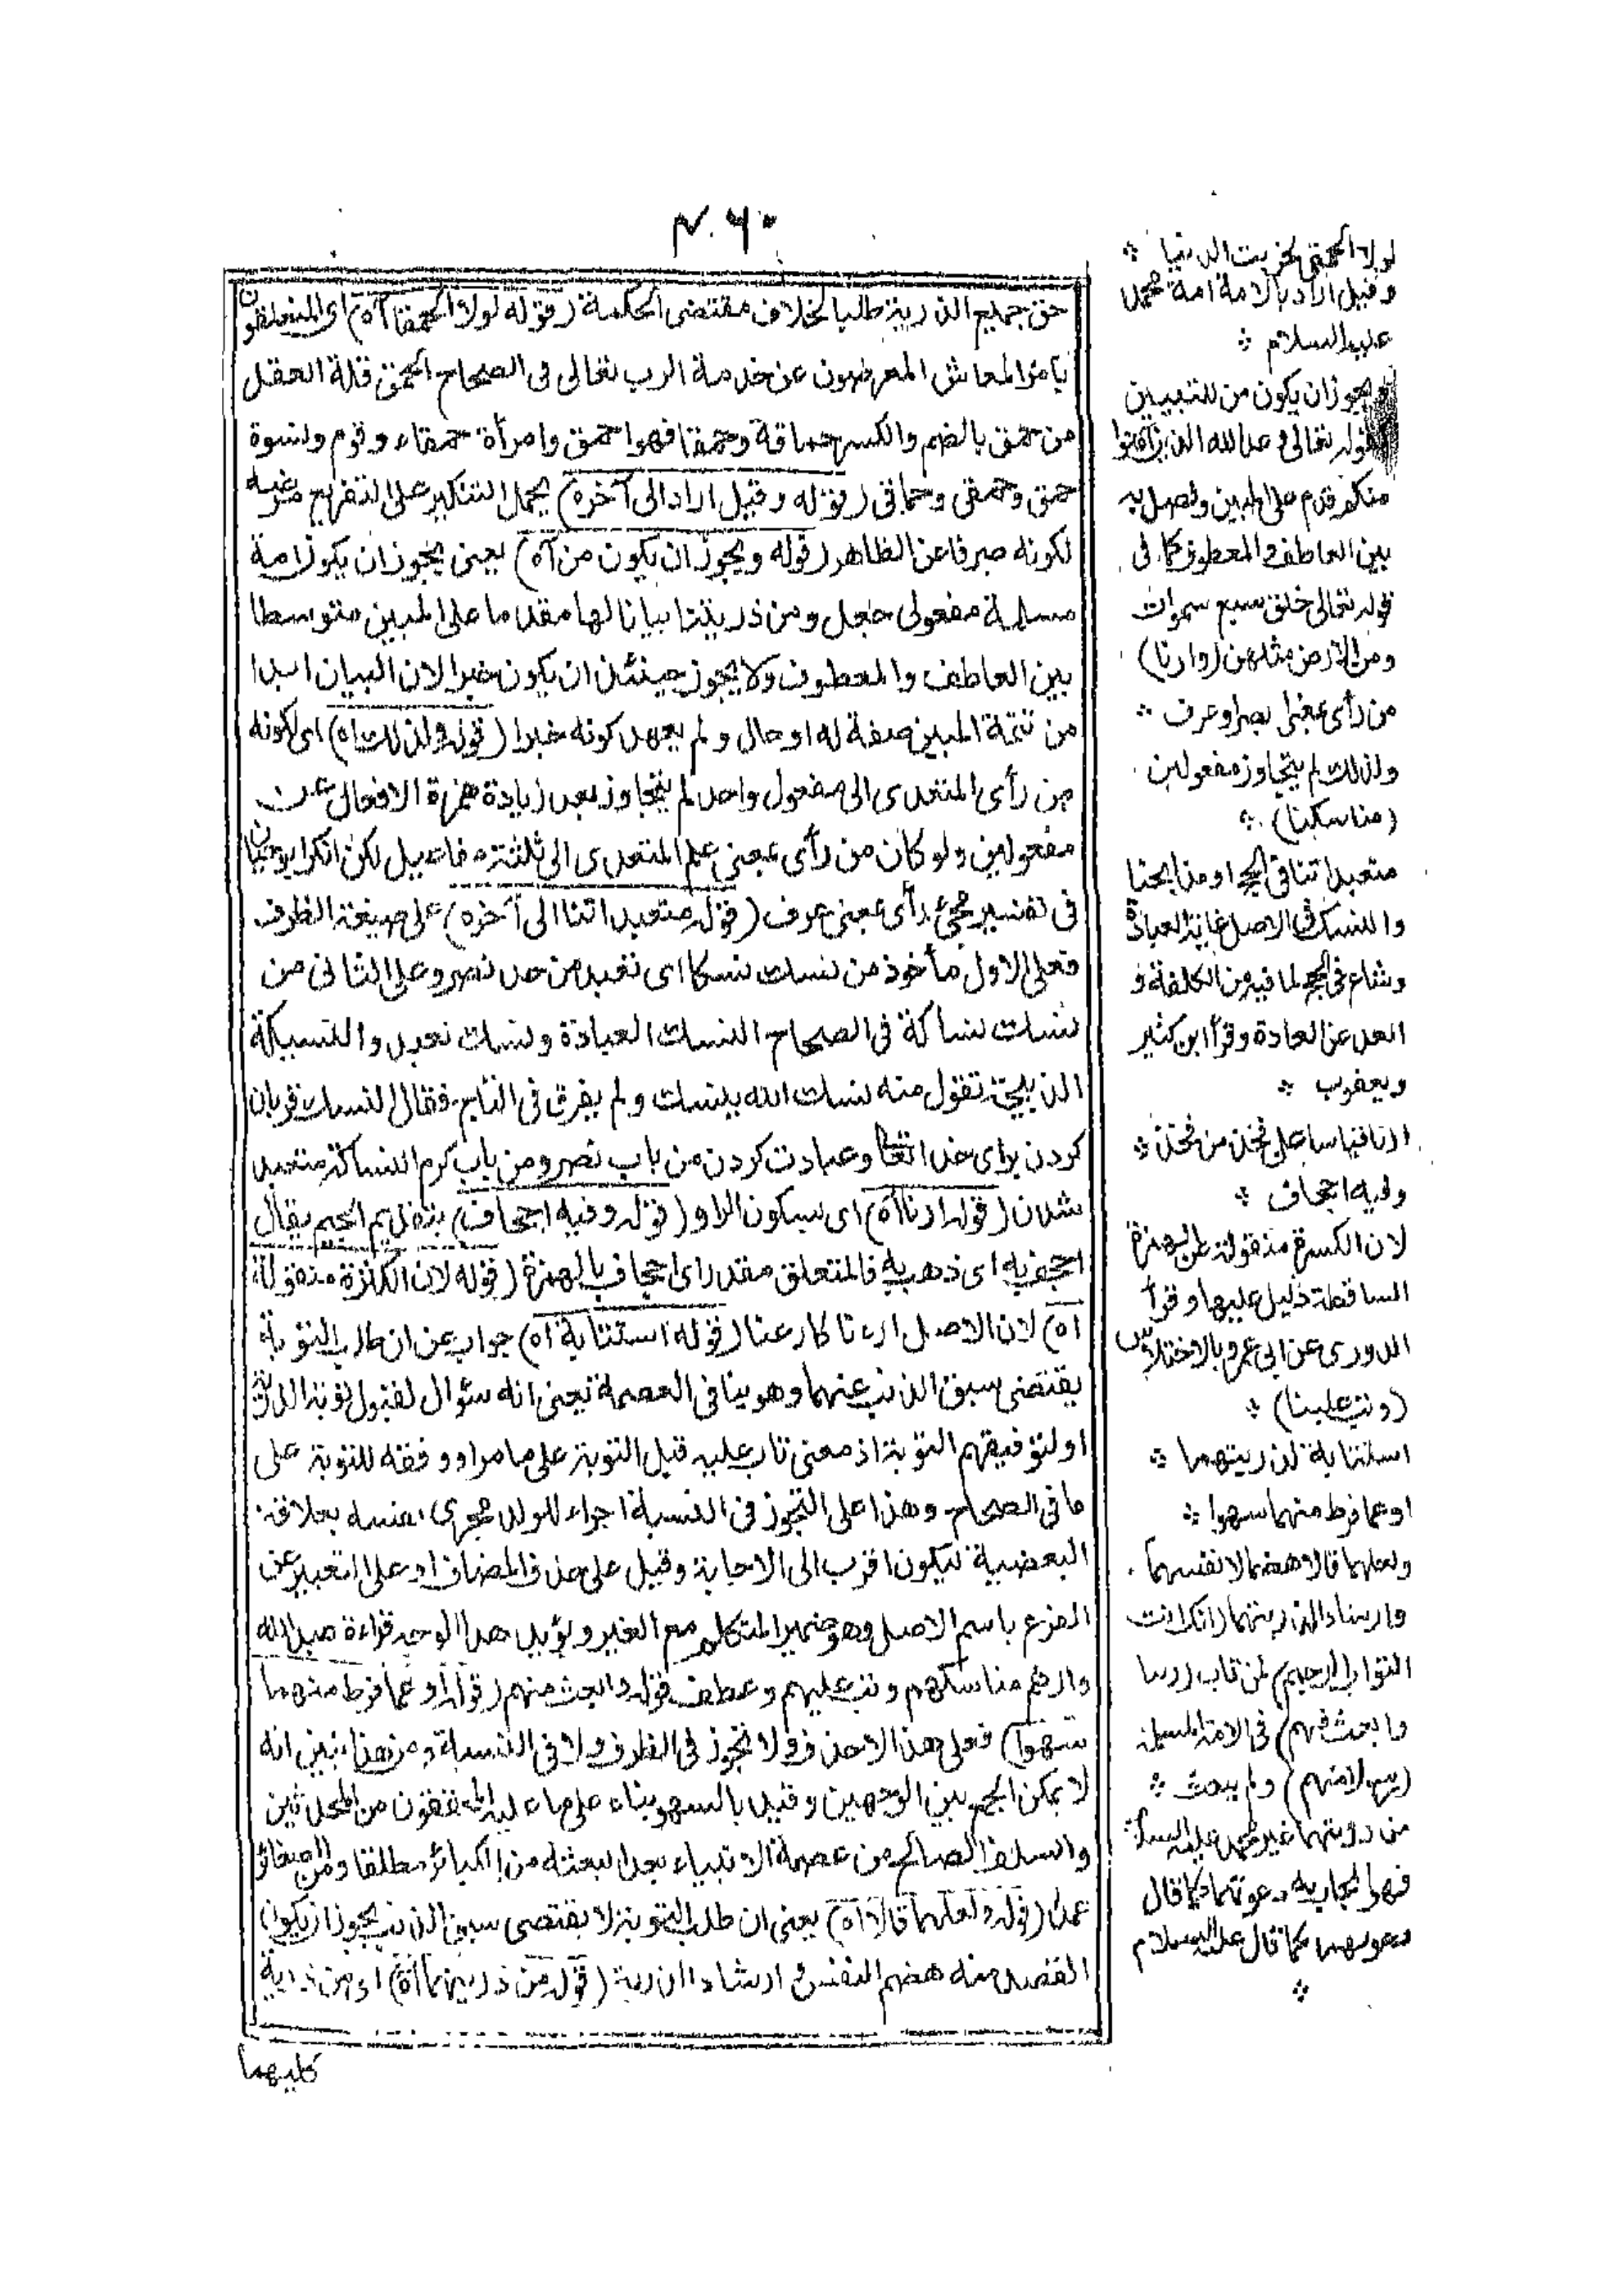 ٤٦٠
حق جميع الذرية طلبا لخلاف مقتضى الحكمة (قوله لولا الحمقا آه) اى المتعلقون
بامر المعاش المعرضون عن خدمة الرب تعالى فى الصحاح الحمق قلة العقل
من حمق بالضم والكسر حماقة وحمقا فهو احمق وامرأة حمقاء وقوم ونسوة
حمق وحمقى وحماقى (قوله وقيل اراد الى آخره) يحمل التنكير على التفريح
لكونه صرفا عن الظاهر (قوله ويجوز ان يكون من آه) يعنى يجوز ان يكون امة
مسلمة مفعولى جعل ومن ذريتنا بيانا لها مقدما على المبين متوسطا
بين العاطف والمعطوف ولا يجوز حينئذ ان يكون خبرا لان البيان ابدا
من تتمة المبين صفة له او حال ولم يعهد كونه خبرا (قوله ولذلك آه) اى لكونه
من رأى المتعدى الى مفعول واحد لم يتجاوز بعد زيادة همزة الافعال عن
مفعولين ولو كان من رأى بمعنى علم المتعدى الى ثلثة مفاعيل لكن انكر ابو حيان
فى تفسيره مجئ رأى بمعنى عرف (قوله متعبداتنا الى آخره) على صيغة الظرف
فعلى الاول مأخوذ من نسك نسكا اى تعبد من حد نصر وعلى الثانى من
نسك نساكة فى الصحاح النسك العبادة ونسك تعبد والنسيكة
الذبيحة تقول منه نسك الله ينسك ولم يفرق فى التاج فقال النسك قربان
كردن براى خدا تعا وعبادت كردن من باب نصر ومن باب كرم النساكة متعبد
شدن (قوله ارنا آه) اى بسكون الراء (قوله وفيه اجحاف) بتقديم الجيم يقال
اجحف به اى ذهب به فالمتعلق مقدر اى اجحاف بالهمزة (قوله لان الكسرة منقولة
آه) لان الاصل ارءنا كارعنا (قوله استتابة آه) جواب عن ان طلب التوبة
يقتضى سبق الذنب عنهما وهو ينافى العصمة يعنى انه سئوال لقبول توبة الذرية
او لتوفيقهم التوبة اذ معنى تاب عليه قبل التوبة على ما مر او وفقه للتوبة على
ما فى الصحاح وهذا على التجوز فى النسبة اجراء للولد مجرى نفسه بعلاقة
البعضية ليكون اقرب الى الاجابة وقيل على حذف المضاف او على التعبير عن
الفرع باسم الاصل وهو ضمير المتكلم مع الغير ويؤيد هذا الوجه قراءة عبد الله
وارهم مناسكهم وتب عليهم وعطف قوله وابعث منهم (قوله او عما فرط منهما
سهوا) فعلى هذا لا حذف ولا تجوز فى الظرف ولا فى النسبة ومن هذا تبين انه
لا يمكن الجمع بين الوجهين وقيد بالسهو بناء على ما عليه المحققون من المحدثين
والسلف الصالح من عصمة الانبياء بعد البعثة من الكبائر مطلقا ومن الصغائر
عمدا (قوله ولعلهما قالا آه) يعنى ان طلب التوبة لا يقتضى سبق الذنب يجوز ان يكون
القصد منه هضم النفس وارشاد الذرية (قوله من ذريتهما آه) اى من ذرية
كليهما
لولا الحمقى لخربت الدنيا
وقيل اراد بالامة امة محمد
عليه السلام
ويجوز ان يكون من للتبيين
كقوله تعالى وعد الله الذين آمنوا
منكم قدم على المبين وفصل به
بين العاطف والمعطوف كما فى
قوله تعالى خلق سبع سموات
ومن الارض مثلهن (وارنا)
من رأى بمعنى ابصر او عرف
ولذلك لم يتجاوز مفعولين
(مناسكنا)
متعبداتنا فى الحج او مذابحنا
والنسك فى الاصل غاية العبادة
وشاع فى الحج لما فيه من الكلفة و
البعد عن العادة وقرأ ابن كثير
ويعقوب
ارنا قياسا على فخذ من فخذ
وفيه اجحاف
لان الكسرة منقولة من الهمزة
الساقطة دليل عليها وقرأ
الدورى عن ابى عمرو بالاختلاس
(وتب علينا)
استتابة لذريتهما
او عما فرط منهما سهوا
ولعلهما قالا هضما لانفسهما
وارشادا لذريتهما (انك انت
التواب الرحيم) لمن تاب (ربنا
وابعث فيهم) فى الامة المسلمة
(رسولا منهم) ولم يبعث
من ذريتهما غير محمد عليه السلام
فهو المجاب به دعوتهما كما قال
كما قال عليه السلام